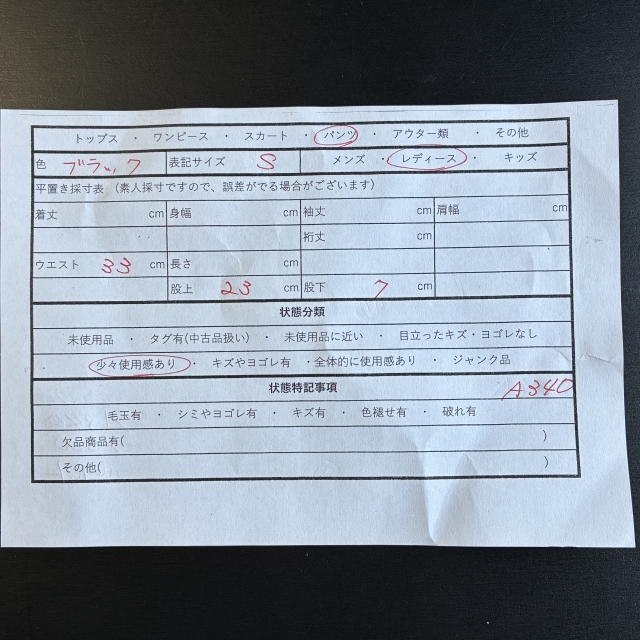 トップス ・ ワンピース ・ スカート ・ パンツ ・ アウター類 ・ その他
色 ブラック 表記サイズ S メンズ ・ レディース ・ キッズ
平置き採寸表 (素人採寸ですので、誤差がでる場合がございます)
着丈 cm 身幅 cm 袖丈 cm 肩幅 cm
裄丈 cm
ウエスト 33 cm 長さ cm
股上 23 cm 股下 7 cm
状態分類
未使用品 ・ タグ有(中古品扱い) ・ 未使用品に近い ・ 目立ったキズ・ヨゴレなし
少々使用感あり ・ キズやヨゴレ有 ・全体的に使用感あり ・ ジャンク品
状態特記事項 A340
毛玉有 ・ シミやヨゴレ有 ・ キズ有 ・ 色褪せ有 ・ 破れ有
欠品商品有( )
その他( )